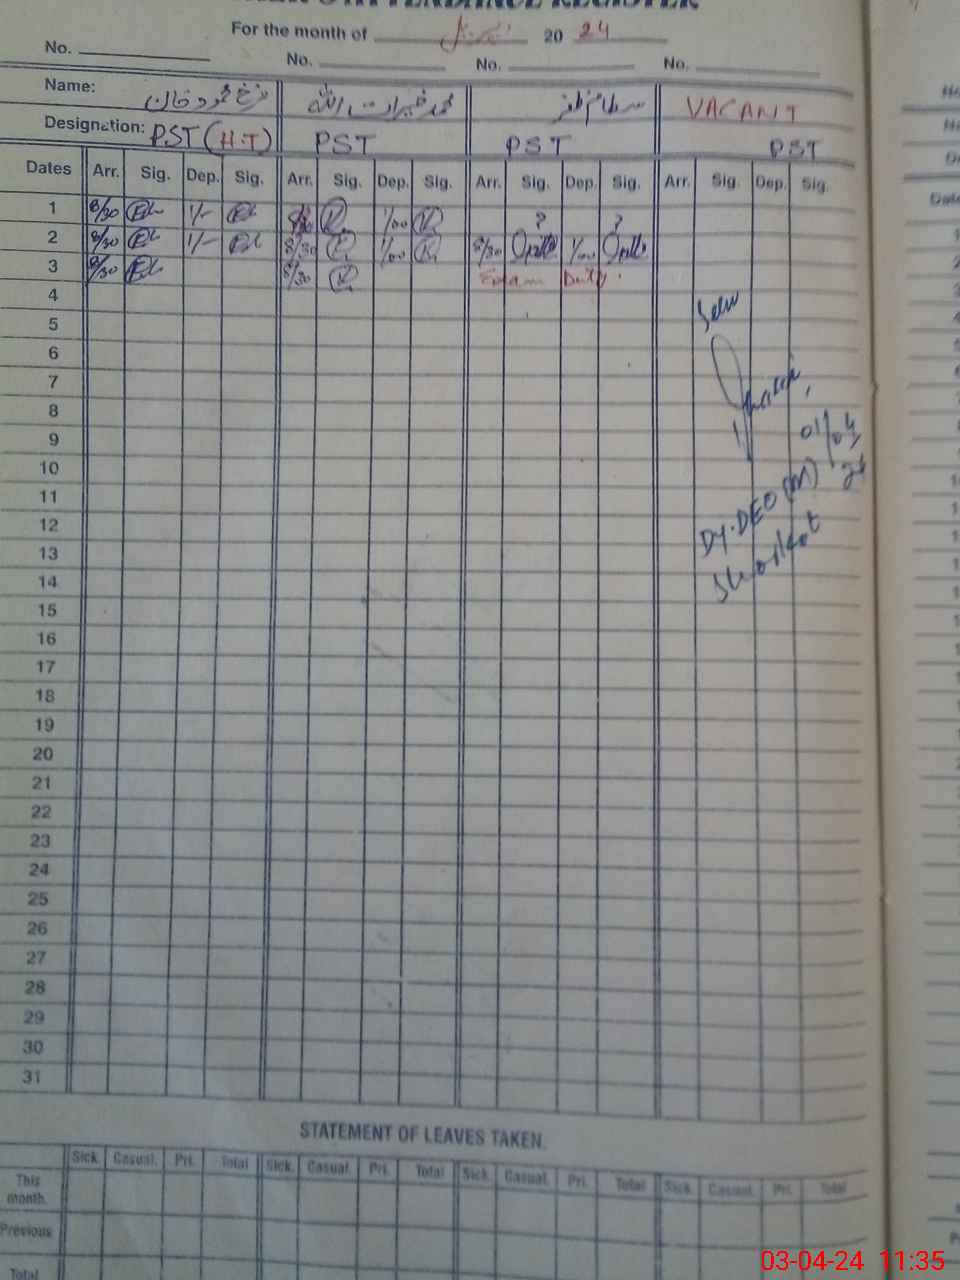 ATTENDANCE REGISTER
For the month of اپریل 20 24
No. No. No. No.
Name: فرخ محمود خان محمد خیرات اللہ VACANT
Designation: PST (H.T) PST PST PST
Dates Arr. Sig. Dep. Sig. Arr. Sig. Dep. Sig. Arr. Sig. Dep. Sig. Arr. Sig. Dep. Sig.
1 8/30 1/- 8/30 1/00 ? ?
2 8/30 1/- 8/30 1/00 8/30 1/00
3 8/30 8/30 Exam Duty
4
Seen
5
6
7
8
9
01/04/24
10
11
12
DY.DEO (M)
13
Shorkot
14
15
16
17
18
19
20
21
22
23
24
25
26
27
28
29
30
31
STATEMENT OF LEAVES TAKEN.
Sick. Casual. Pri. Total Sick. Casual. Pri. Total Sick. Casual. Pri. Total Sick. Casual. Pri. Total
This month.
Previous
Total
03-04-24 11:35